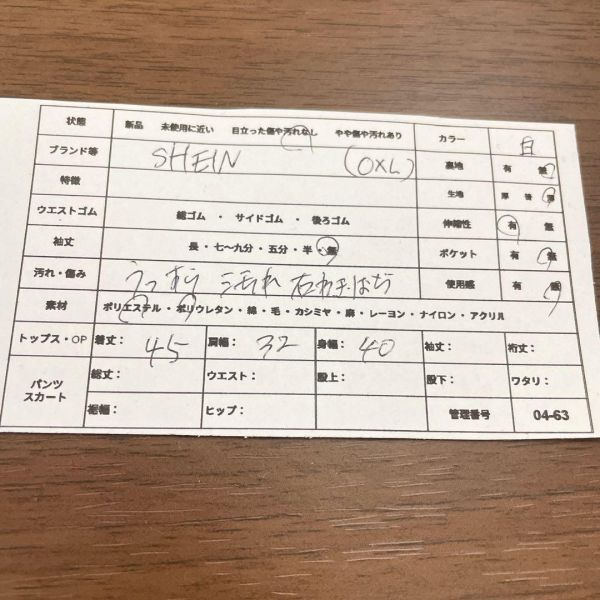 状態 新品 未使用に近い 目立った傷や汚れなし やや傷や汚れあり カラー 白
ブランド等 SHEIN (OXL) 裏地 有 無
特徴 生地 厚 普 薄
ウエストゴム 総ゴム ・ サイドゴム ・ 後ろゴム 伸縮性 有 無
袖丈 長・七〜九分・五分・半・無 ポケット 有 無
汚れ・傷み うっすら 汚れ 右わき 使用感 有 無
素材 ポリエステル・ポリウレタン・綿・毛・カシミヤ・麻・レーヨン・ナイロン・アクリル
トップス・OP 着丈: 45 肩幅: 32 身幅: 40 袖丈: 裄丈:
パンツ スカート 総丈: ウエスト: 股上: 股下: ワタリ:
裾幅: ヒップ: 管理番号 04-63